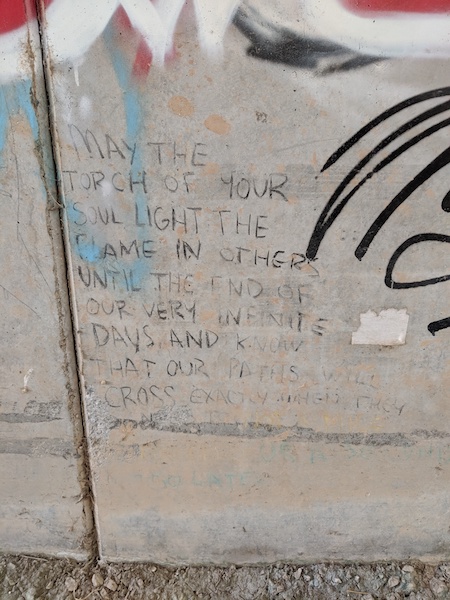 MAY THE
TORCH OF YOUR
SOUL LIGHT THE
FLAME IN OTHERS
UNTIL THE END OF
OUR VERY INFINITE
DAYS AND KNOW
THAT OUR PATHS WILL
CROSS EXACTLY WHEN THEY